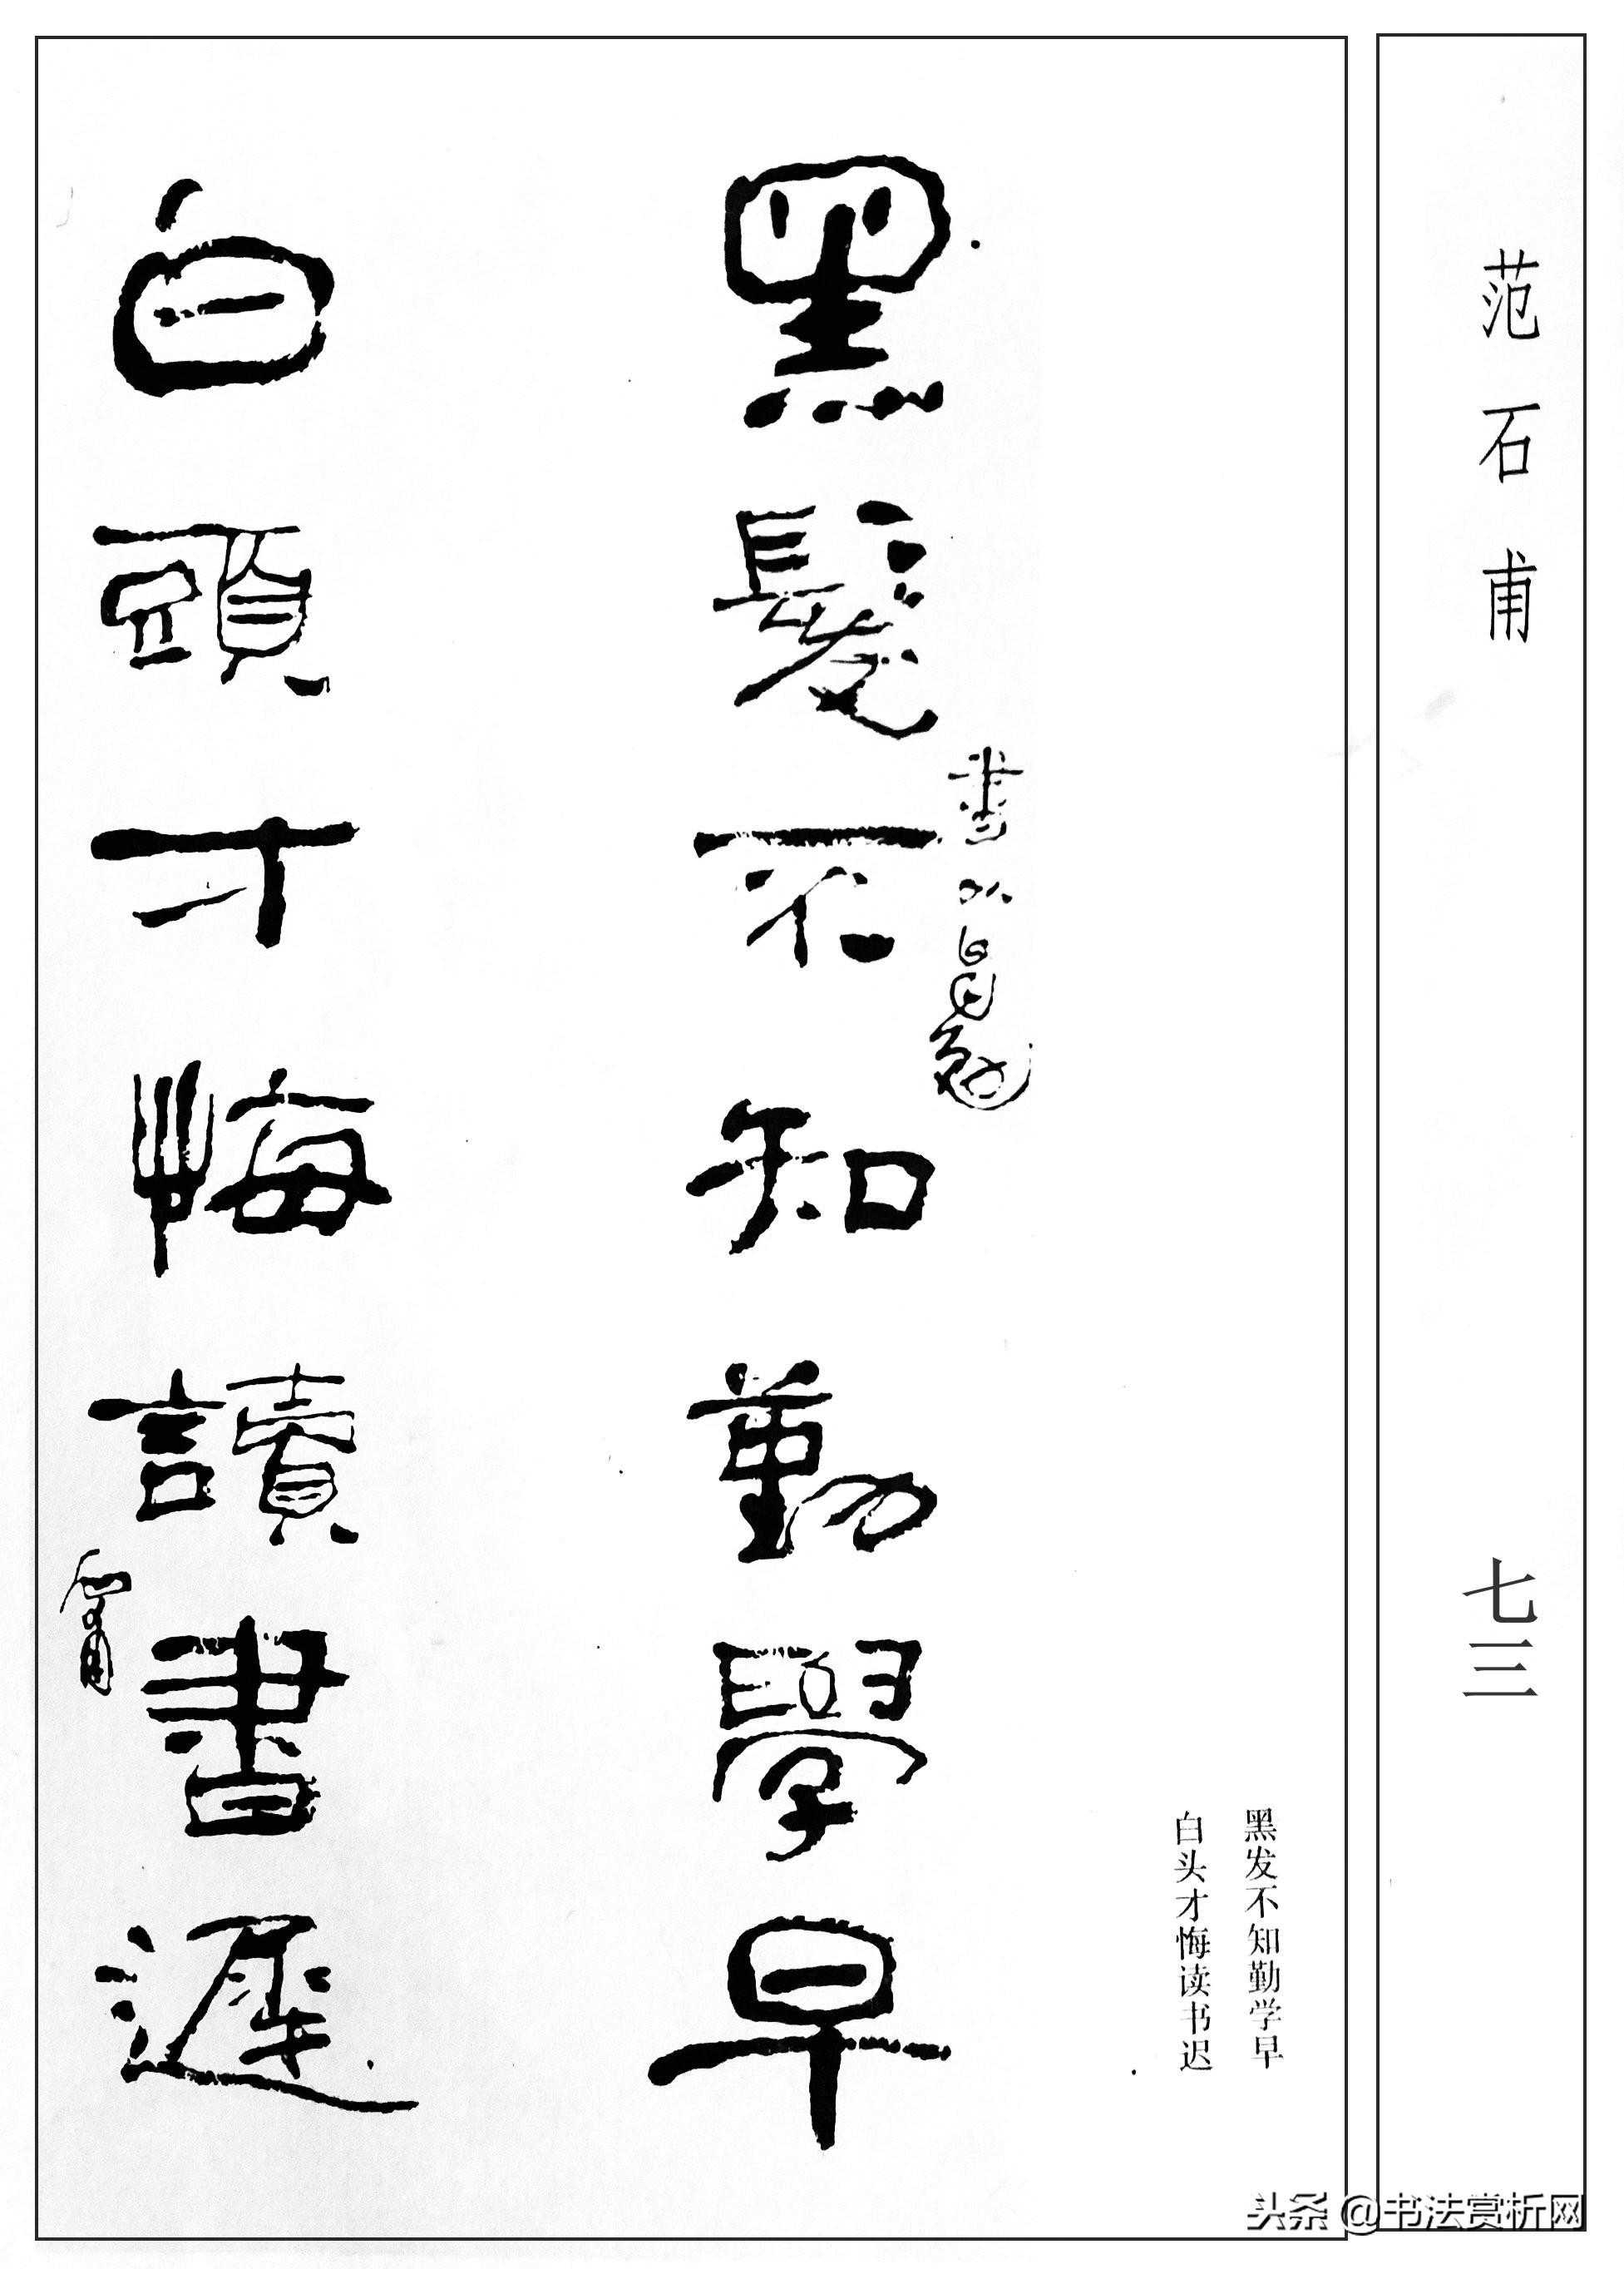 范石甫
七三
黑髮不知勤學早
書以自勉
白頭才悔讀書遲
黑发不知勤学早
白头才悔读书迟
头条@书法赏析网